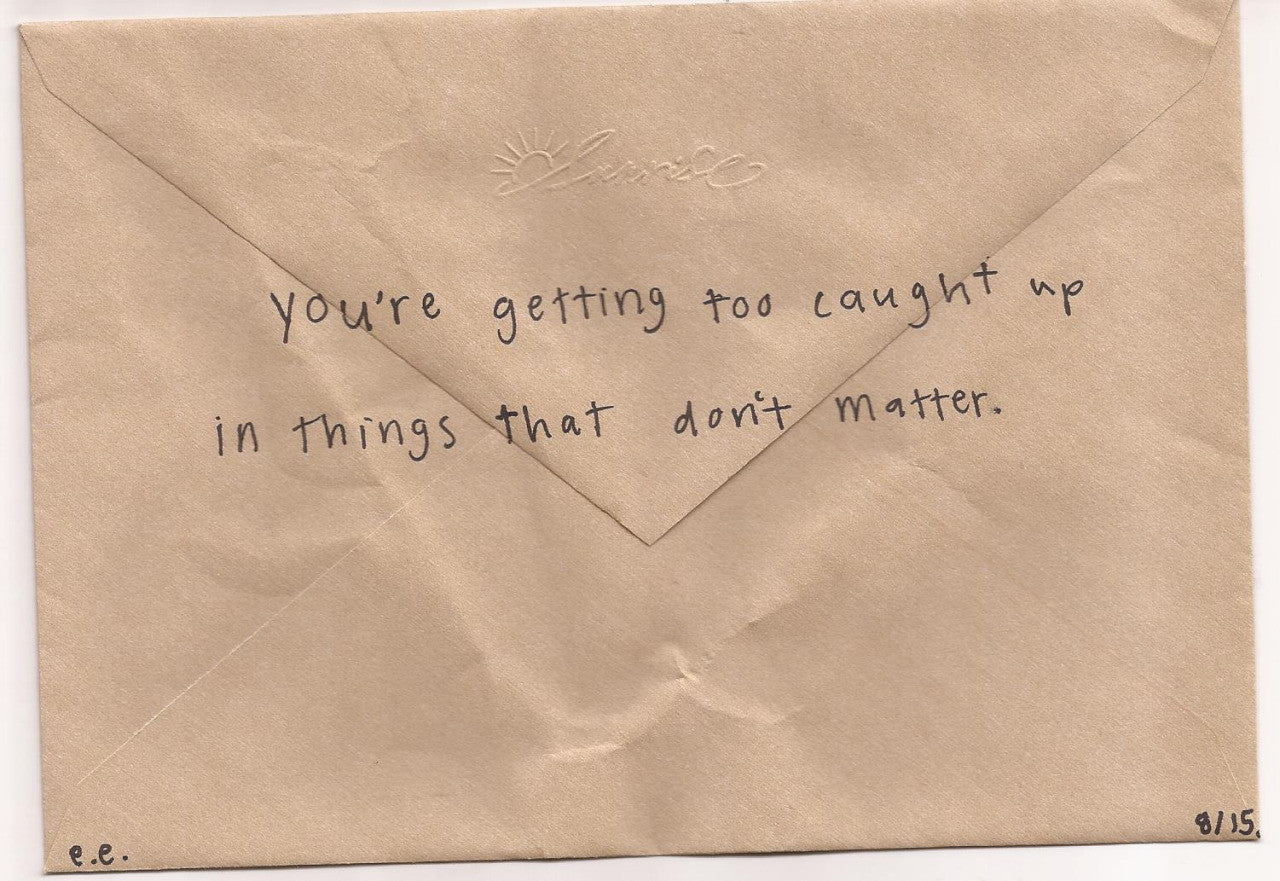 Sunrise
you're getting too caught up
in things that don't matter.
e.e.
8/15.